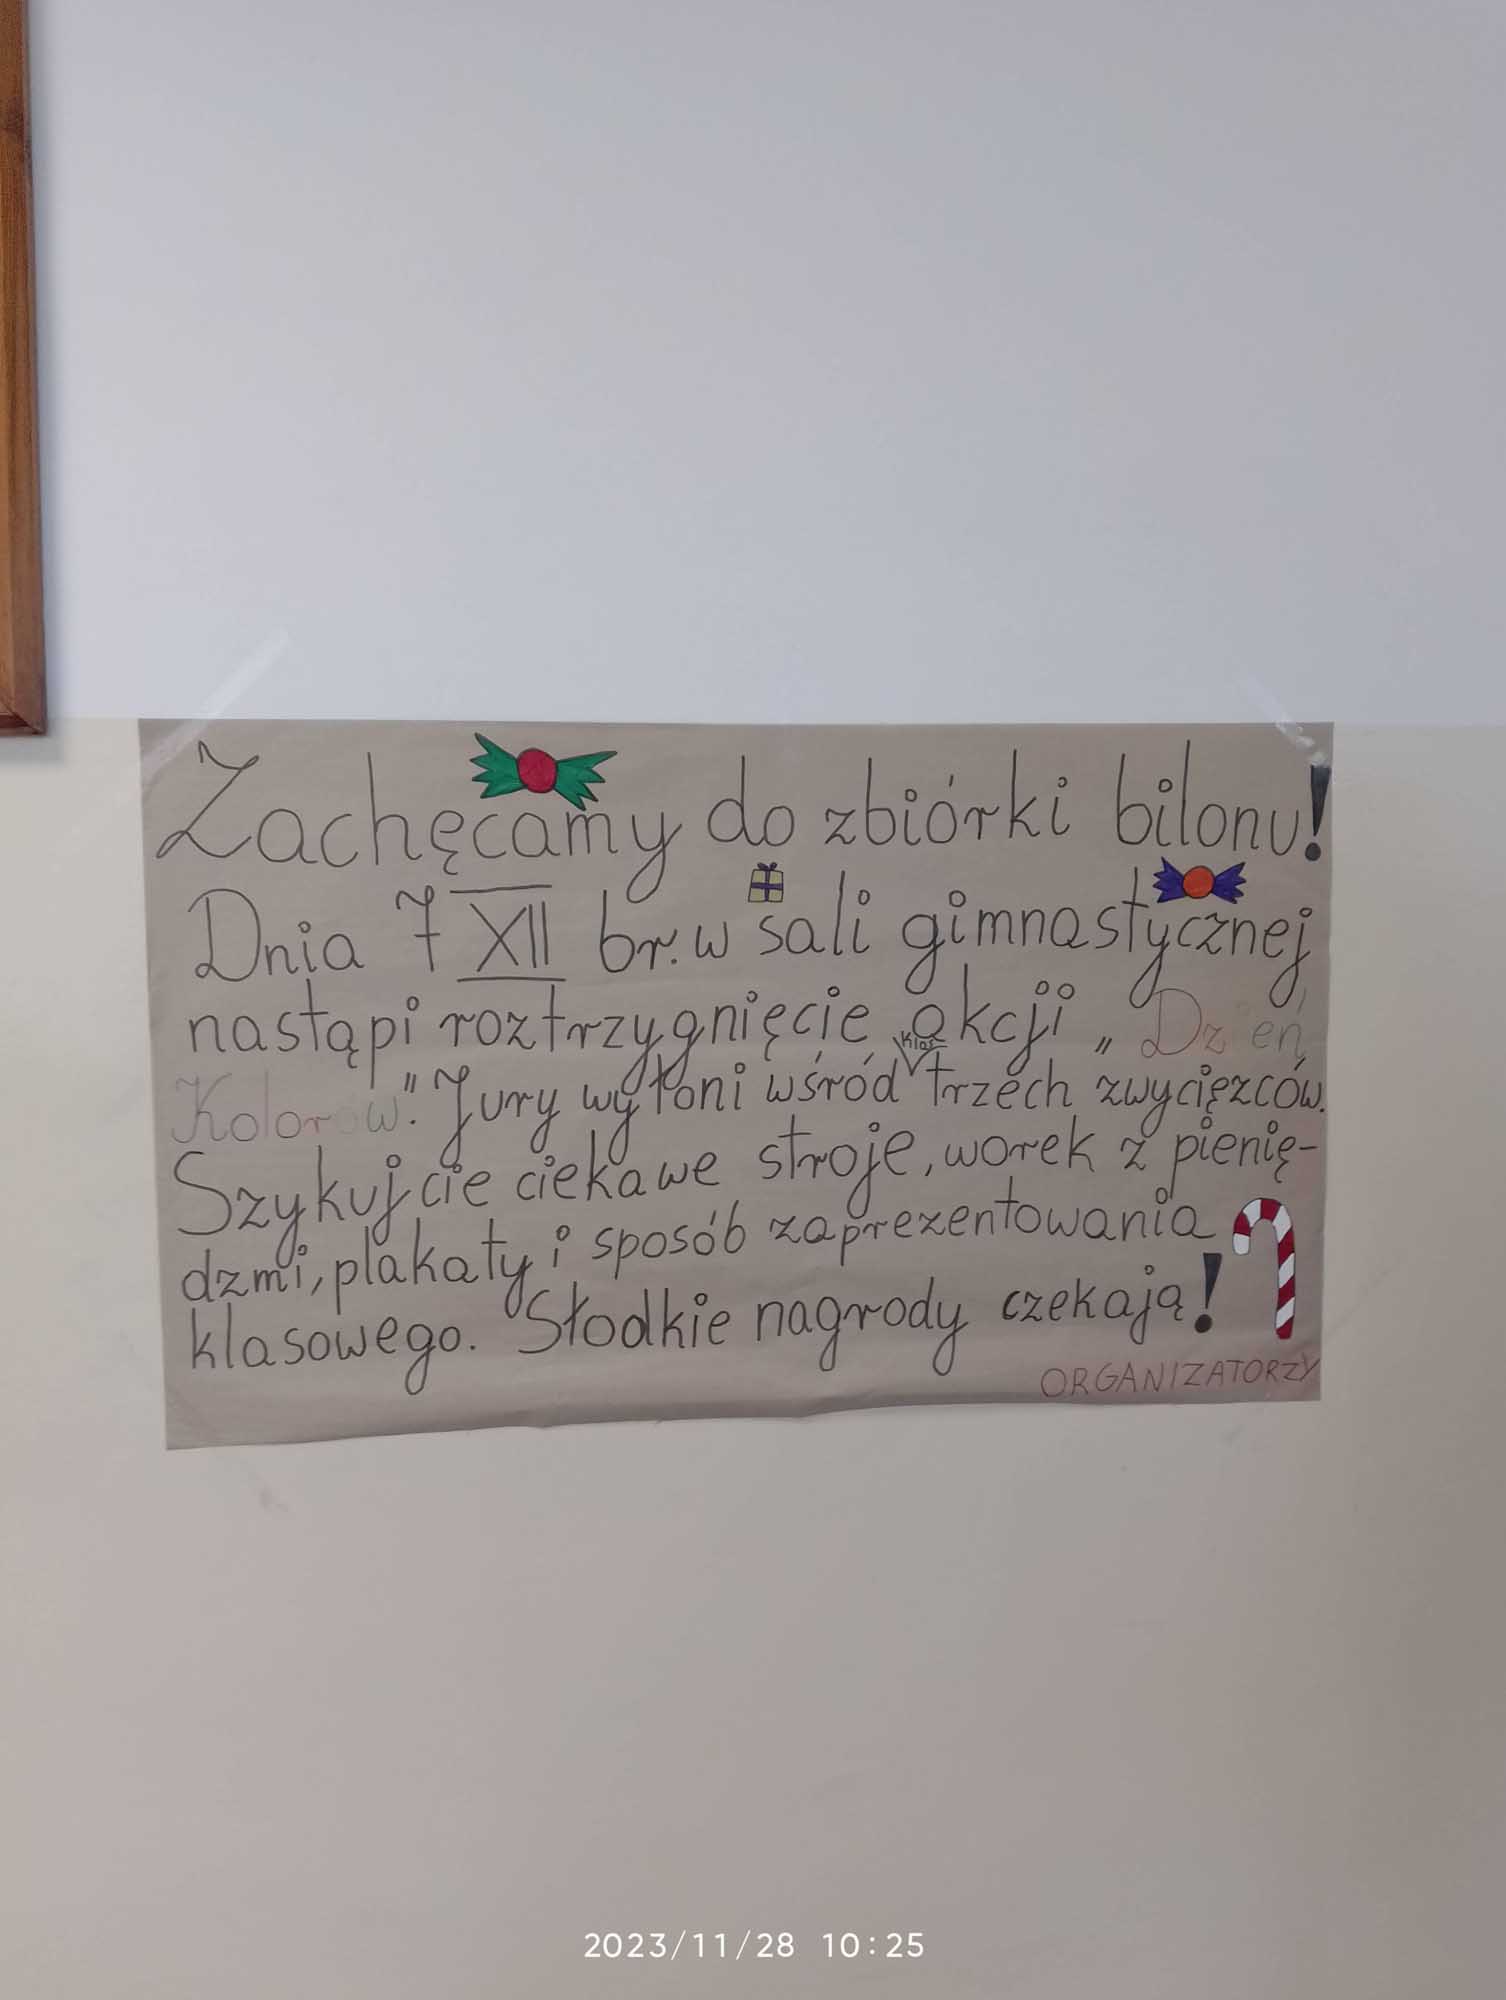 Zachęcamy do zbiórki bilonu!
Dnia 7 XII br. w sali gimnastycznej
nastąpi roztrzygnięcie akcji „Dzień
Kolorów". Jury wyłoni wśród klas trzech zwycięzców.
Szykujcie ciekawe stroje, worek z pienię-
dzmi, plakaty i sposób zaprezentowania
klasowego. Słodkie nagrody czekają!
ORGANIZATORZY
2023/11/28 10:25